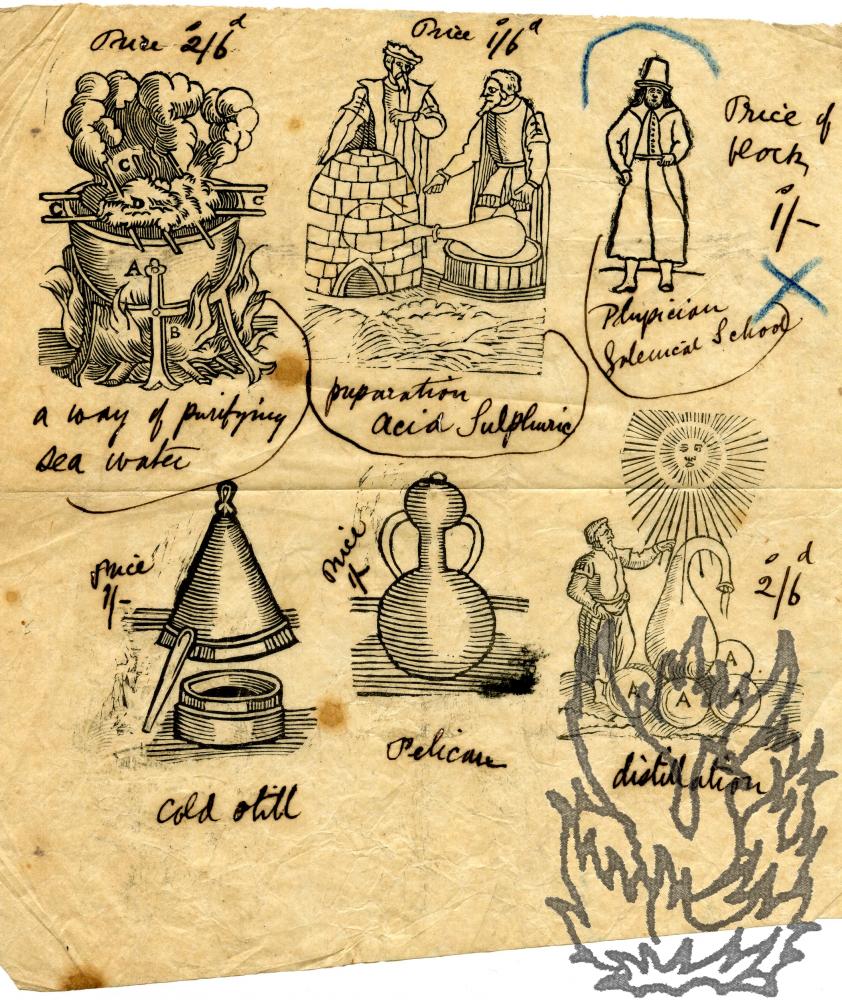 Price 2/6 s d
C
C
D
C
A
B
a way of purifying
sea water
Price 1/6 s d
preparation
acid Sulphuric
Price of
block
s
1/-
Physician
Galenical School
Price
1/-
cold still
Price
1/-
Pelican
s d
2/6
A
A
A
A
distillation